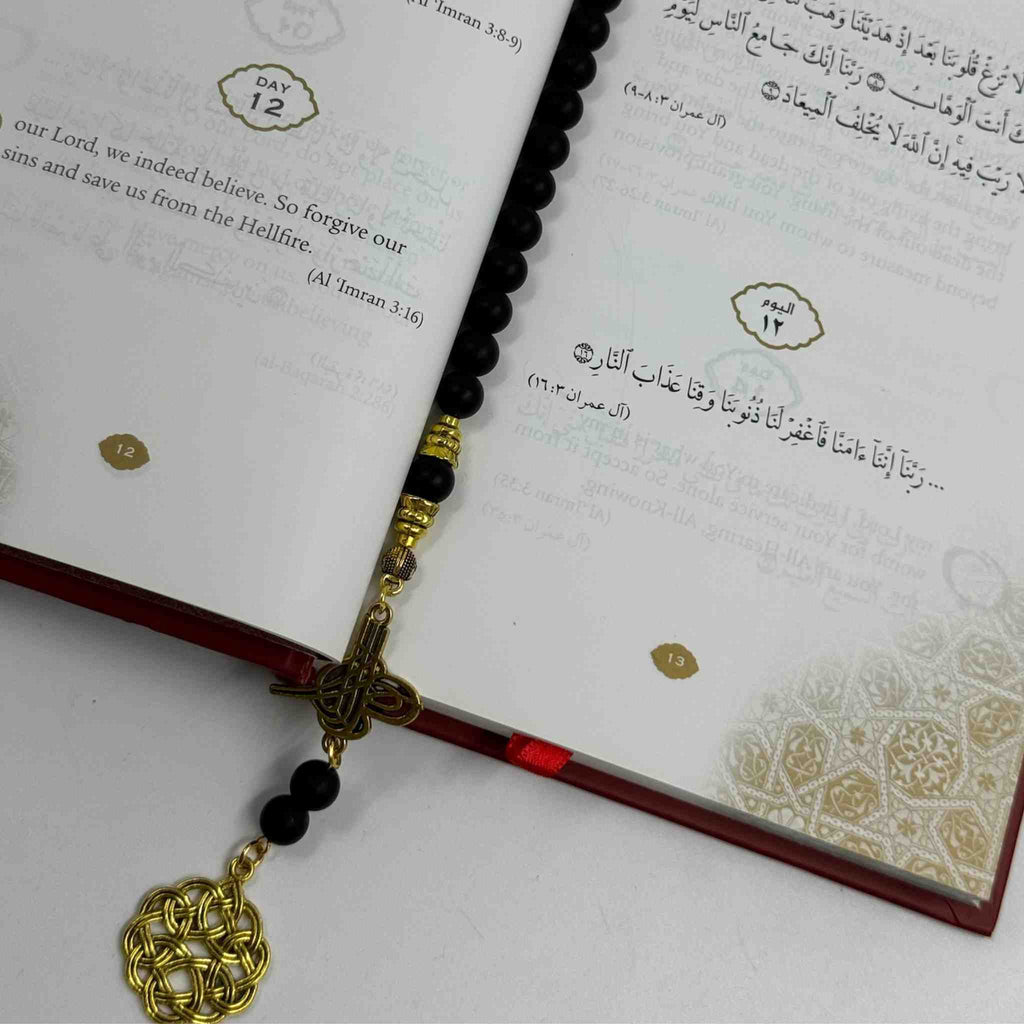 (Al ʿImran 3:8-9)
DAY
12
our Lord, we indeed believe. So forgive our
sins and save us from the Hellfire.
(Al ʿImran 3:16)
12
لَا تُزِغْ قُلُوبَنَا بَعْدَ إِذْ هَدَيْتَنَا وَهَبْ
أَنتَ ٱلْوَهَّابُ ۝٨ رَبَّنَآ إِنَّكَ جَامِعُ ٱلنَّاسِ لِيَوْمٍ
لَا رَيْبَ فِيهِ ۚ إِنَّ ٱللَّهَ لَا يُخْلِفُ ٱلْمِيعَادَ ۝٩
(آل عمران ٣: ٨-٩)
اليوم
١٢
... رَبَّنَآ إِنَّنَآ ءَامَنَّا فَٱغْفِرْ لَنَا ذُنُوبَنَا وَقِنَا عَذَابَ ٱلنَّارِ ۝١٦
(آل عمران ٣: ١٦)
13